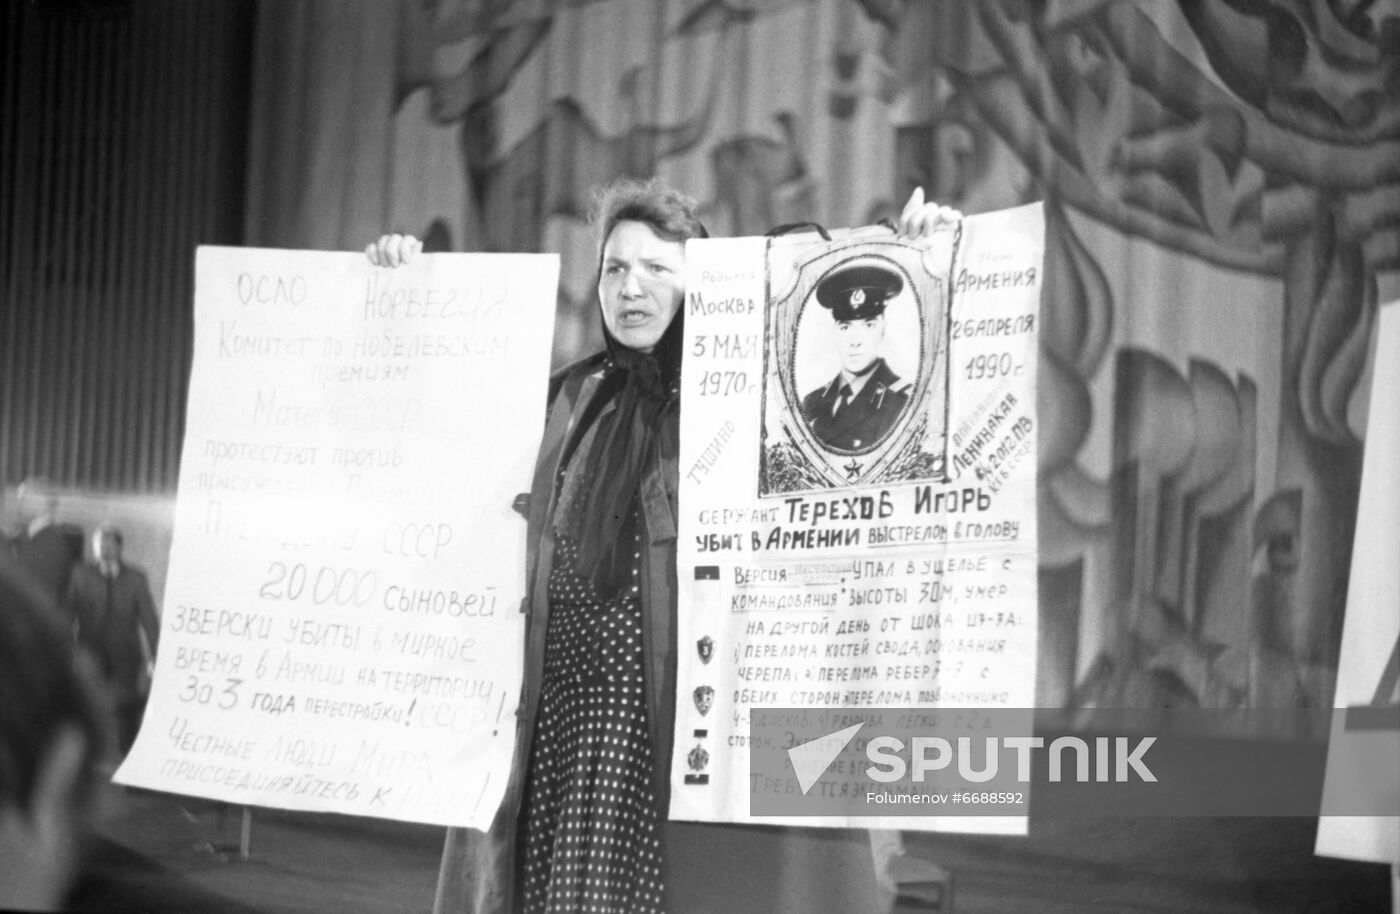 ОСЛО НОРВЕГИЯ
Комитет по Нобелевским
премиям
Матери СССР
протестуют против
Президенту СССР
20 000 сыновей
зверски убиты в мирное
время в Армии на территории
За 3 года перестройки! СССР!
Честные люди Мира
присоединяйтесь к нам!
Родился
Москва
3 мая
1970г.
Тушино
Убит
Армения
26 апреля
1990г.
Ленинакан
в/ч 2012 ПВ
КГБ СССР
сержант Терехов Игорь
убит в Армении выстрелом в голову
Версия : упал в ущелье с
командования высоты 30м, умер
на другой день от шока из-за:
1) перелома костей свода, основания
черепа; 2) перелома ребер 3-7 с
обеих сторон; перелома позвоночника
4-5 дисков, 4) разрыва легких с 2х
сторон.
Требуется
SPUTNIK
Folumenov #6688592